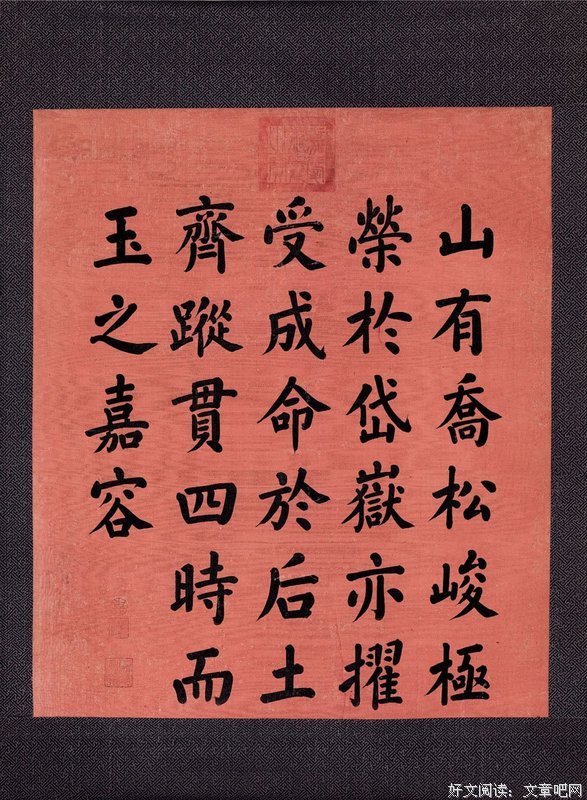 山有喬松峻極
榮於岱嶽亦擢
受成命於后土
齊蹤貫四時而
玉之嘉容
好文阅读：文章吧网